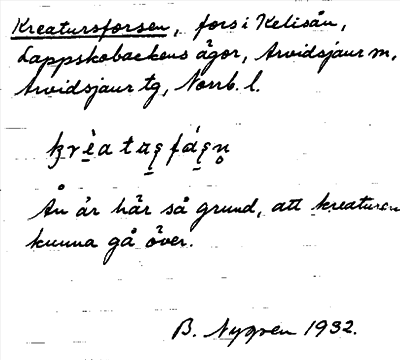 Kreatursforsen, fors i Kelisån,
Lappskobackens ågor, Arvidsjaur m,
Arvidsjaur tg, Norrb. l.
Ån är här så grund, att kreaturen
kunna gå över.
B. Nygren 1932.